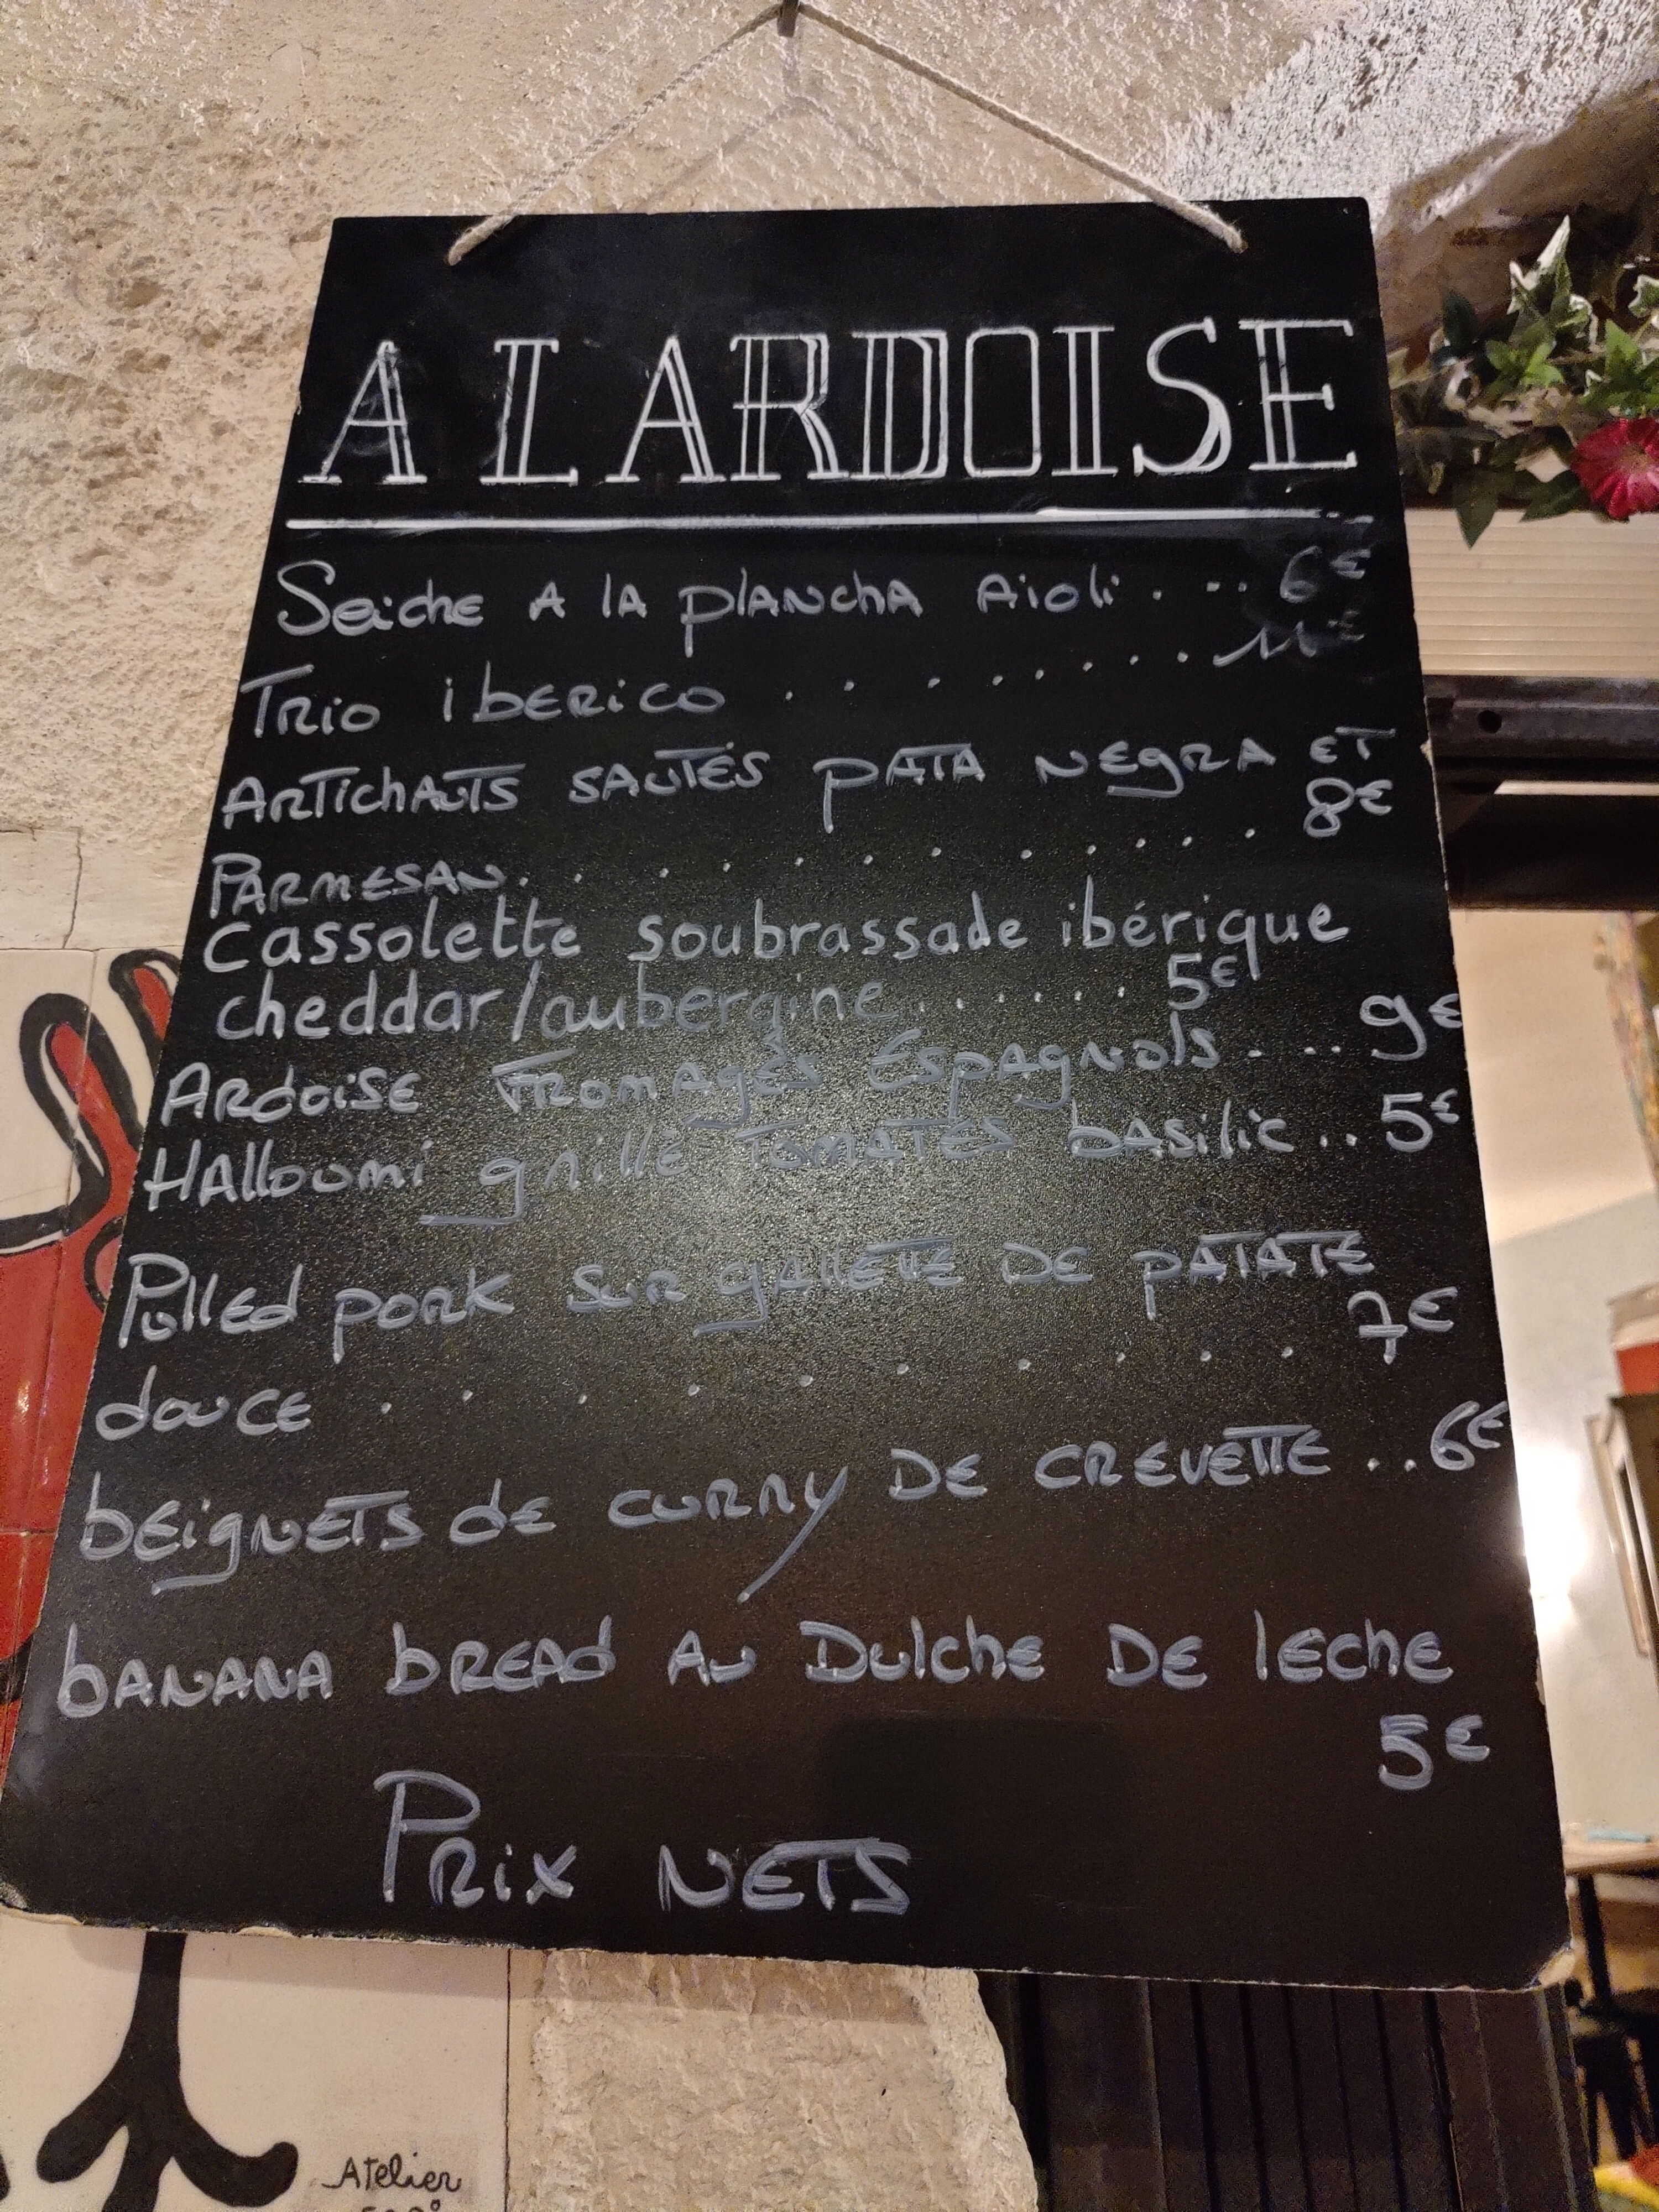 A LARDOISE
Seiche A lA plANchA Aioli . . . 6€
TRio ibERiCO . . . . . . . . 11€
ARTichAuTS SAUTÉS pATA NEgRA ET
PARMESAN. . . . . . . . . . . 8€
cassolette soubrassade ibérique
cheddar/aubergine. . . . . . 5€
ARdoiSE FROMAgES ESpAgNols . . . . 9€
HAlloumi gRillé TOMATES bASilic . . 5€
PullEd pORK SuR gAllETTE DE pATATE
douCE . . . . . . . . . 7€
bEigNETS dE CURRy DE CREVETTE . . 6€
bANANA bREAd Au Dulche DE lEche
5€
PRix NETS
Atelier